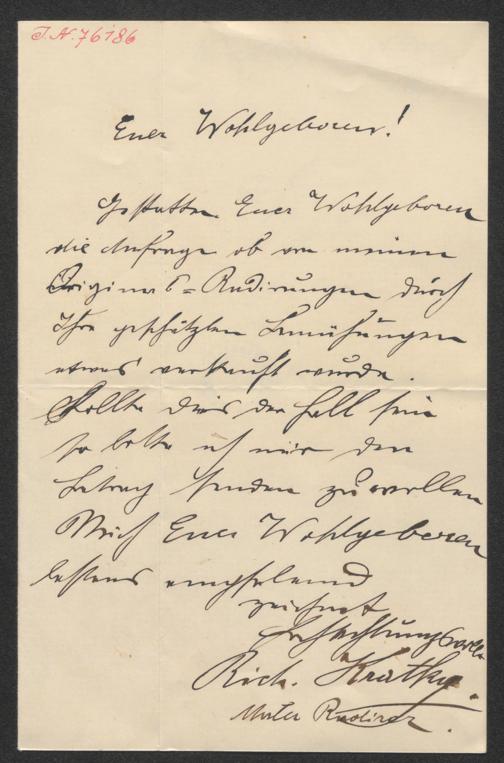 I.N. 76186
Euer Wohlgeboren!
Gestatten Euer Wohlgeboren
die Anfrage ob von meinen
Original-Radirungen durch
Ihre geschätzten Bemühungen
etwas verkauft wurde.
Sollte dies der Fall sein
so bitte ich mir den
Betrag senden zu wollen
Mich Euer Wohlgeboren
bestens empfelend
zeichnet
Hochachtungsvoll
Rich. Kratky.
Maler Radirer.